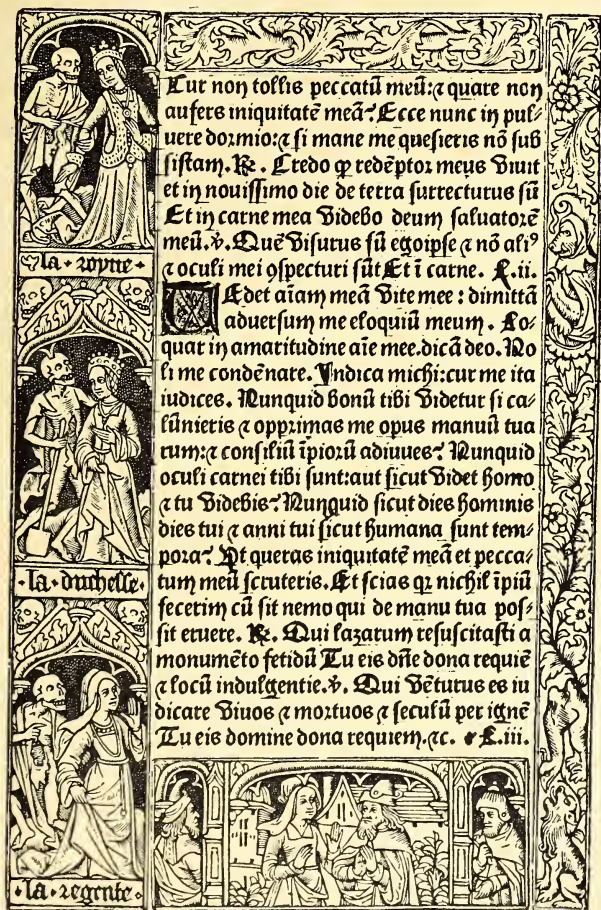 Cur non tollis peccatū meū: ⁊ quare non
aufers iniquitatē meā? Ecce nunc in pul⸗
uere dormio: ⁊ si mane me quesieris nō sub
sistam. ℟. Credo ꝙ redēptor meus viuit
et in nouissimo die de terra surrecturus sū
Et in carne mea videbo deum saluatorē
meū. ℣. Quē visurus sū egoipse ⁊ nō aliꝰ
⁊ oculi mei ꝯspecturi sūt Et ī carne. L.ii.
TEdet aīam meā vite mee : dimittā
aduersum me eloquiū meum. Lo⸗
quar in amaritudine aīe mee. dicā deo. No
li me condēnare. Indica michi: cur me ita
iudices. Nunquid bonū tibi videtur si ca⸗
lūnieris ⁊ opprimas me opus manuū tua
rum: ⁊ consiliū īpiorū adiuues? Nunquid
oculi carnei tibi sunt: aut sicut videt homo
⁊ tu videbis? Nunquid sicut dies hominis
dies tui ⁊ anni tui sicut humana sunt tem⸗
pora? Ut queras iniquitatē meā et pecca⸗
tum meū scruteris. Et scias qꝛ nichil īpiū
fecerim cū sit nemo qui de manu tua pos⸗
sit eruere. ℟. Qui lazarum resuscitasti a
monumēto fetidū Tu eis dn̄e dona requiē
⁊ locū indulgentie. ℣. Qui vēturus es iu
dicare viuos ⁊ mortuos ⁊ seculū per ignē
Tu eis domine dona requiem. ⁊c. L.iii.
la • royne •
• la • duchesse •
• la • regente •